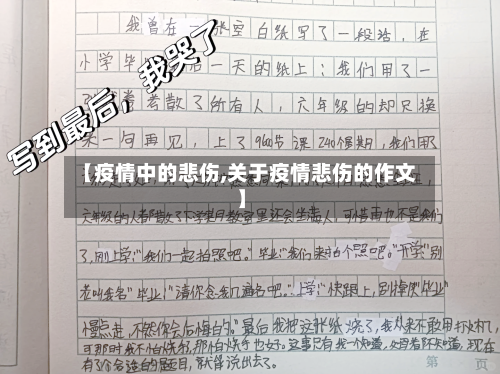 我曾在一张空白纸写了一段话，在
小学毕 后一天的纸上：我们用了一
考散了所有人，六年级的却只换
来一句再见，上了9600节课240个星期，我们用
写到最后，我哭了
【疫情中的悲伤,关于疫情悲伤的作文
】
六年级的人都散了下学期教室里还会坐满人，可惜再也不是我们
了，刚上学："我们一起拍照吧。"毕业："我们来拍个照吧。"开学"别
老叫我名"毕业："请你念我们一遍名吧。"上学："快跟上，别掉队"毕业"
慢点走，不然你会后悔的。"最后我把这张纸烧了，我从来不敢用打火机了，
可那时我不怕烧书，那怕烧手也好。这事只有我一个知道，如果不知道，现在
有了个合适的题目，就详说出去了。
第 页